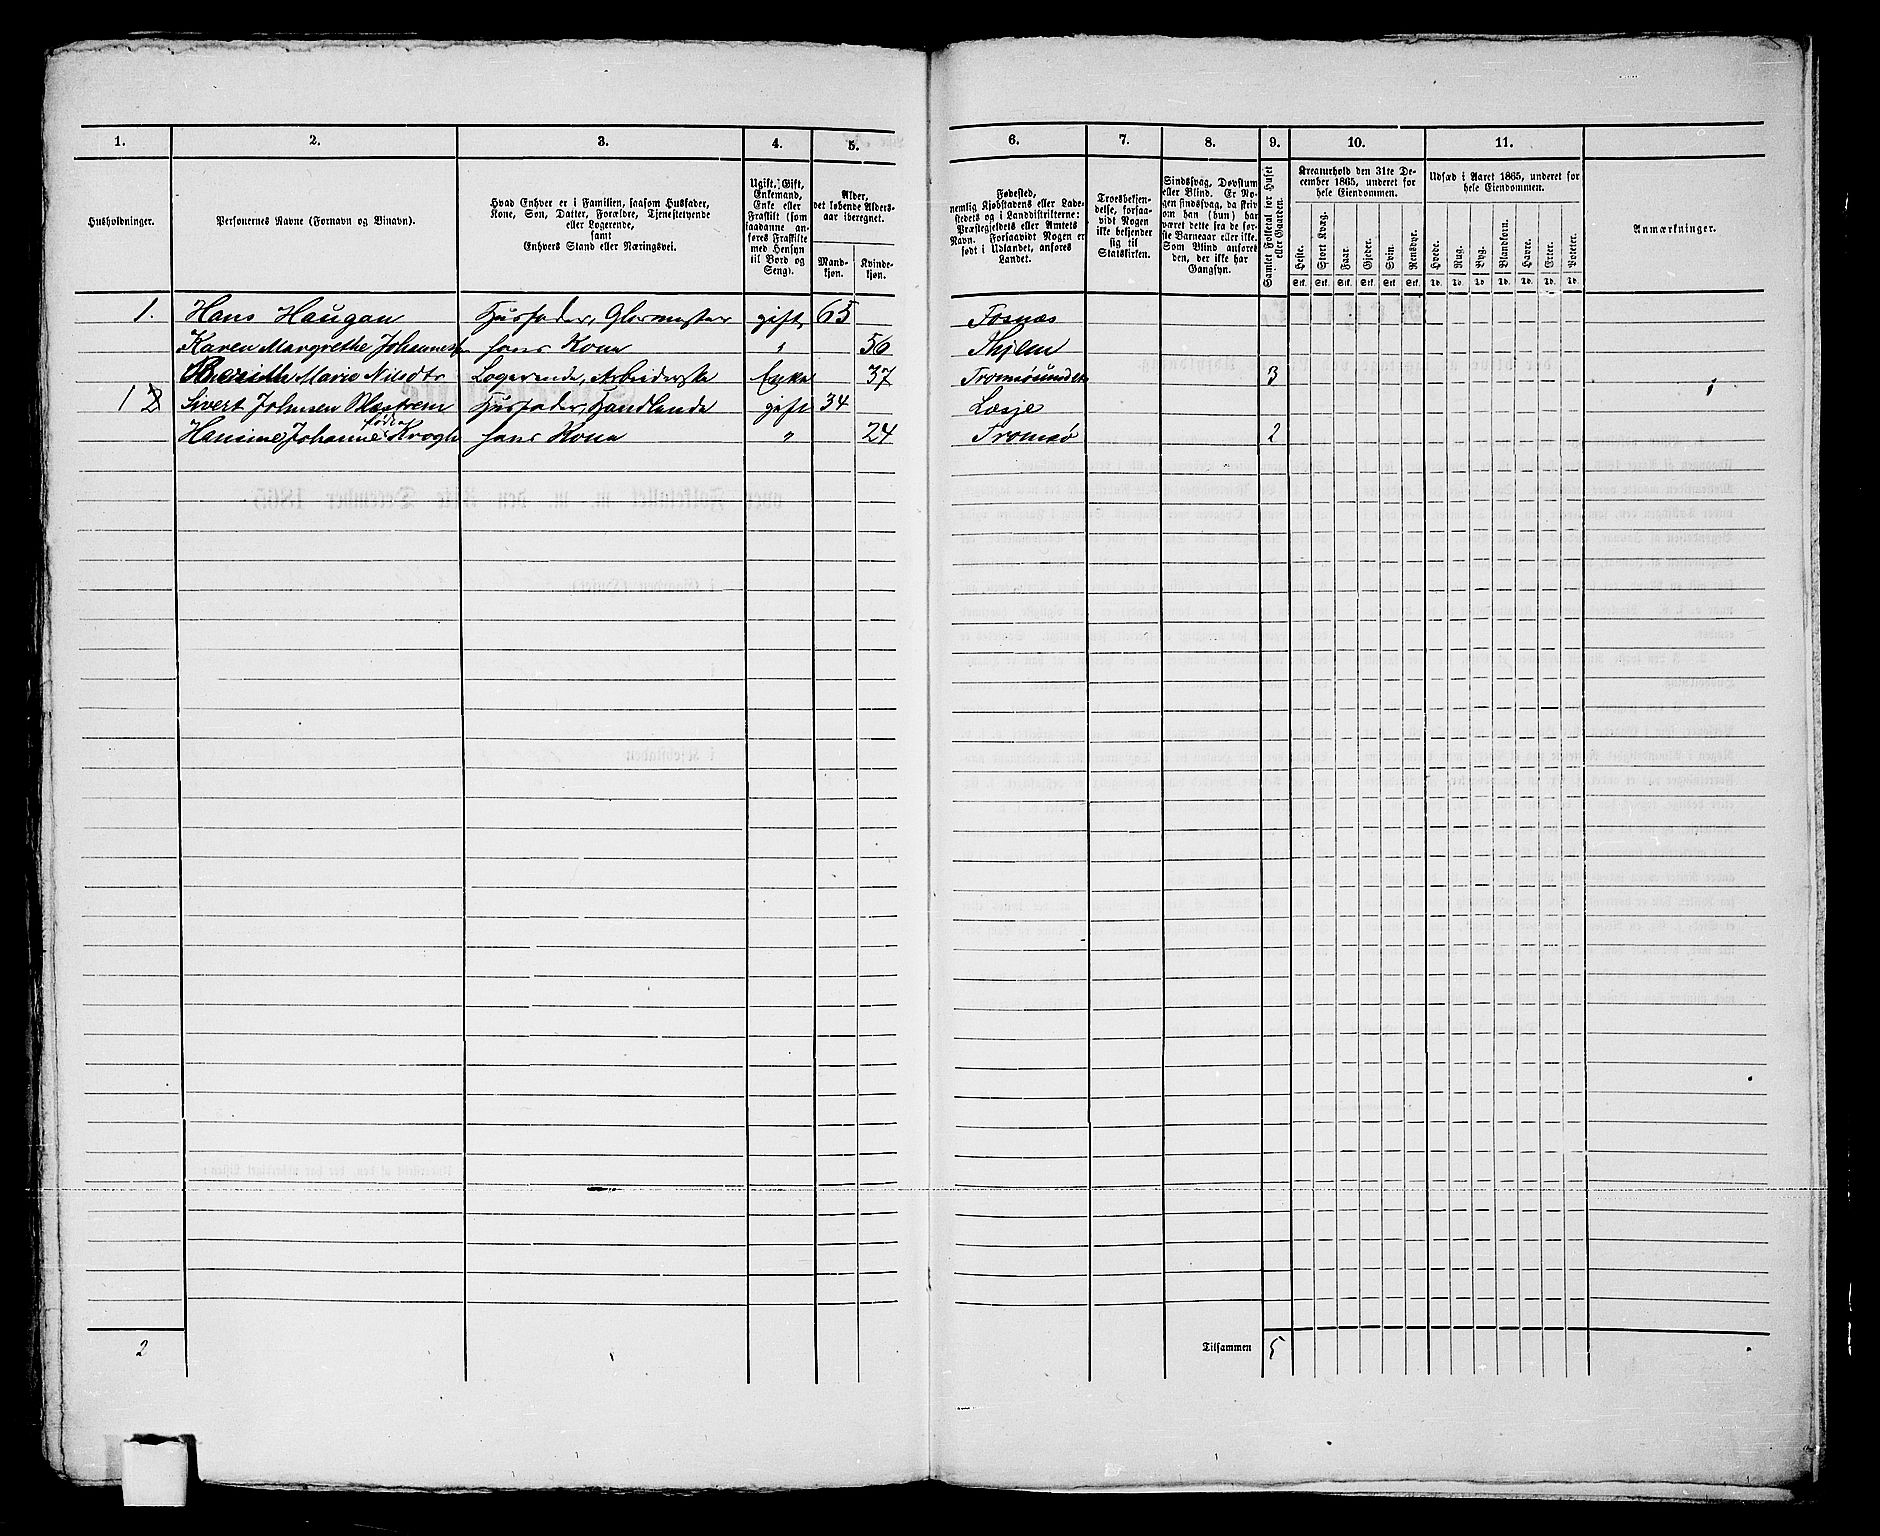 1. 2. 3. 4. 5. 6. 7. 8. 9. 10. 11.
Husholdninger.
Personernes Navne (Fornavn og Binavn).
Hvad Enhver er i Familien, saasom Husfader,
Kone, Søn, Datter, Forældre, Tjenestetyende
eller Logerende,
samt
Enhvers Stand eller Næringsvei.
Ugift, Gift,
Enkemand,
Enke eller
Fraskilt (som
saadanne an-
føres Fraskilte
med Hensyn
til Bord og
Seng).
Alder,
det løbende Alders-
aar iberegnet.
Mand-
kjøn.
Kvinde-
kjøn.
Fødested,
nemlig Kjøbstadens eller Lade-
stedets og i Landdistrikterne:
Præstegjeldets eller Amtets
Navn. Forsaavidt Nogen er
født i Udlandet, anføres
Landet.
Troesbekjen-
delse, forsaa-
vidt Nogen
ikke bekjender
sig til
Statskirken.
Sindssvag, Døvstum
eller Blind. Er No-
gen sindssvag, da skriv
om han (hun) har
været dette fra de før-
ste Barneaar eller ikke.
Som Blind anføres
den, der ikke har
Gangsyn.
Samlet Folketal for Huset
eller Gaarden.
Kreaturhold den 31te De-
cember 1865, underet for
hele Eiendommen.
Heste. Stort Kvæg. Faar. Gjeder. Svin. Rensdyr.
Stk. Stk. Stk. Stk. Stk. Stk.
Udsæd i Aaret 1865, underet for
hele Eiendommen.
Hvede. Rug. Byg. Blandkorn. Havre. Erter. Poteter.
Td. Td. Td. Td. Td. Td. Td.
Anmærkninger.
1. Hans Haugan Husfader, Glarmester gift 65 Fosnæs
Karen Margrethe hans Kone " 56
Marie Nilsdtr Logerende, Arbeiderske Enke 37 Tromsøsundet 3
1 2 Sivert Johnsen Husfader, Handlende gift 34 Lesje 1
Hansine Johanne født Krogh hans Kone " 24 Tromsø 2
2 Tilsammen 5